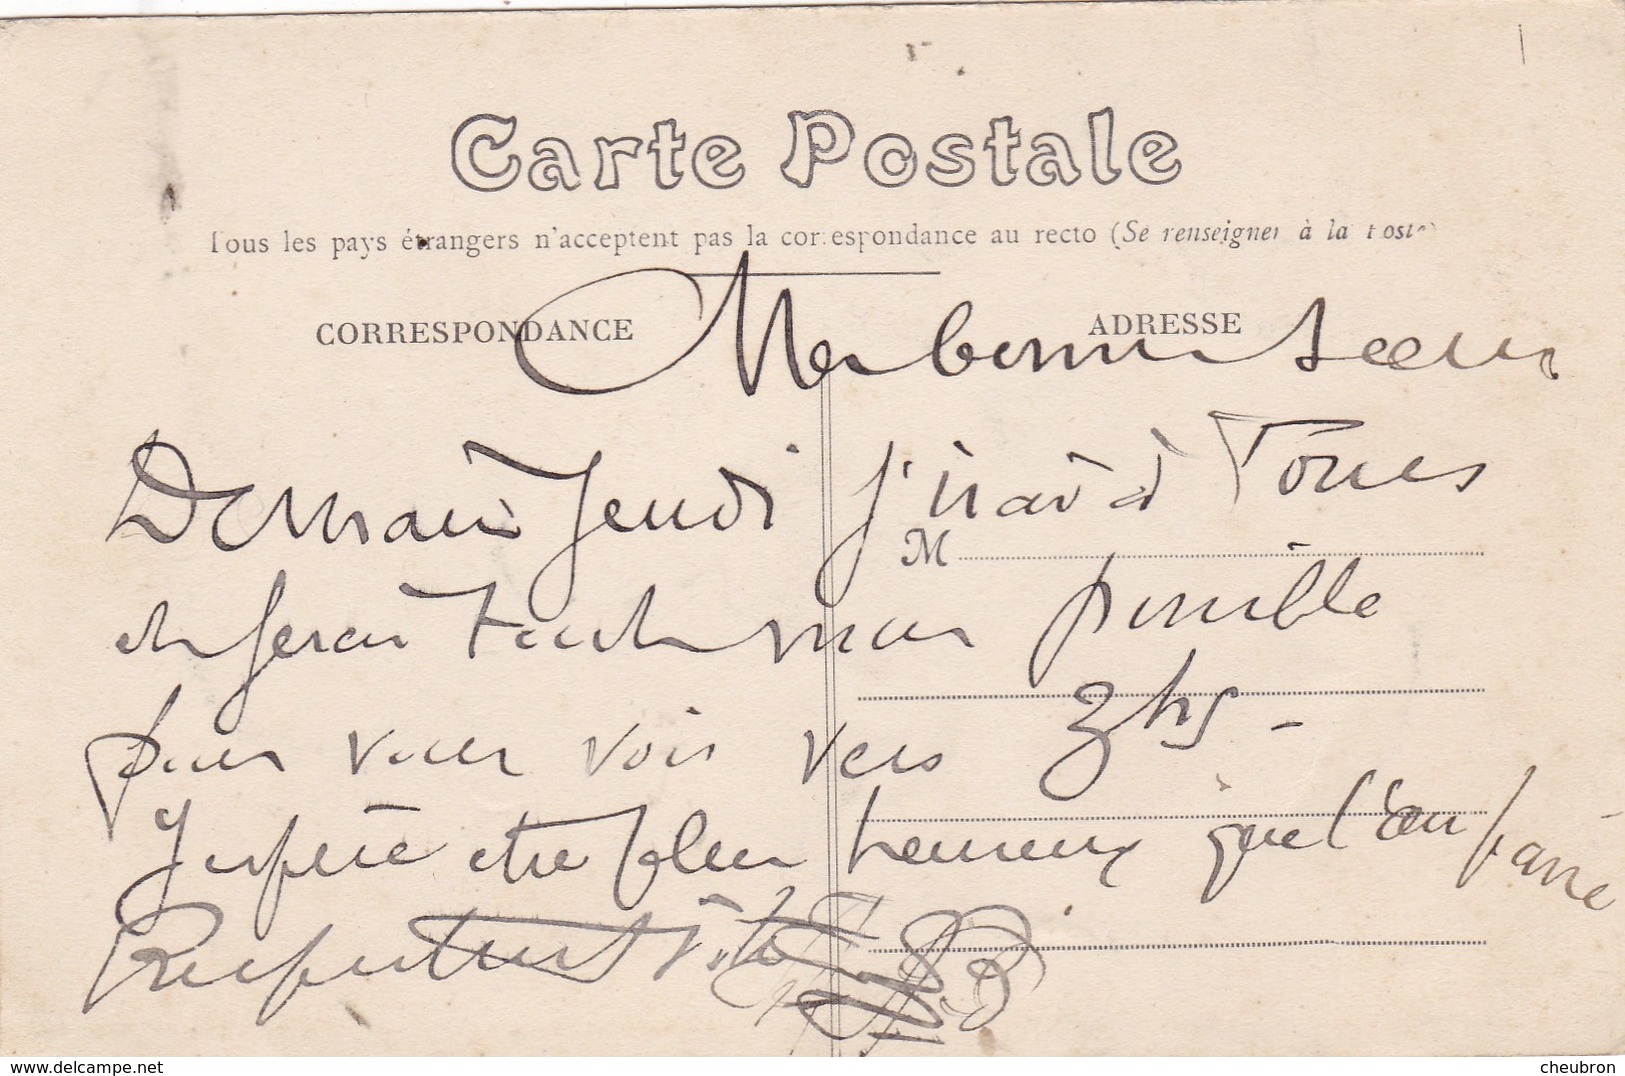 Carte Postale
Tous les pays étrangers n'acceptent pas la correspondance au recto (Se renseigner à la Poste)
CORRESPONDANCE
ADRESSE
Ma bonne Soeur
Demain Jeudi j'irai à Tours
M
et ferai tout mon possible
pour vous voir vers 3hs -
J'espère être plus heureux que l'an passé
Respectueux
www.delcampe.net
cheubron